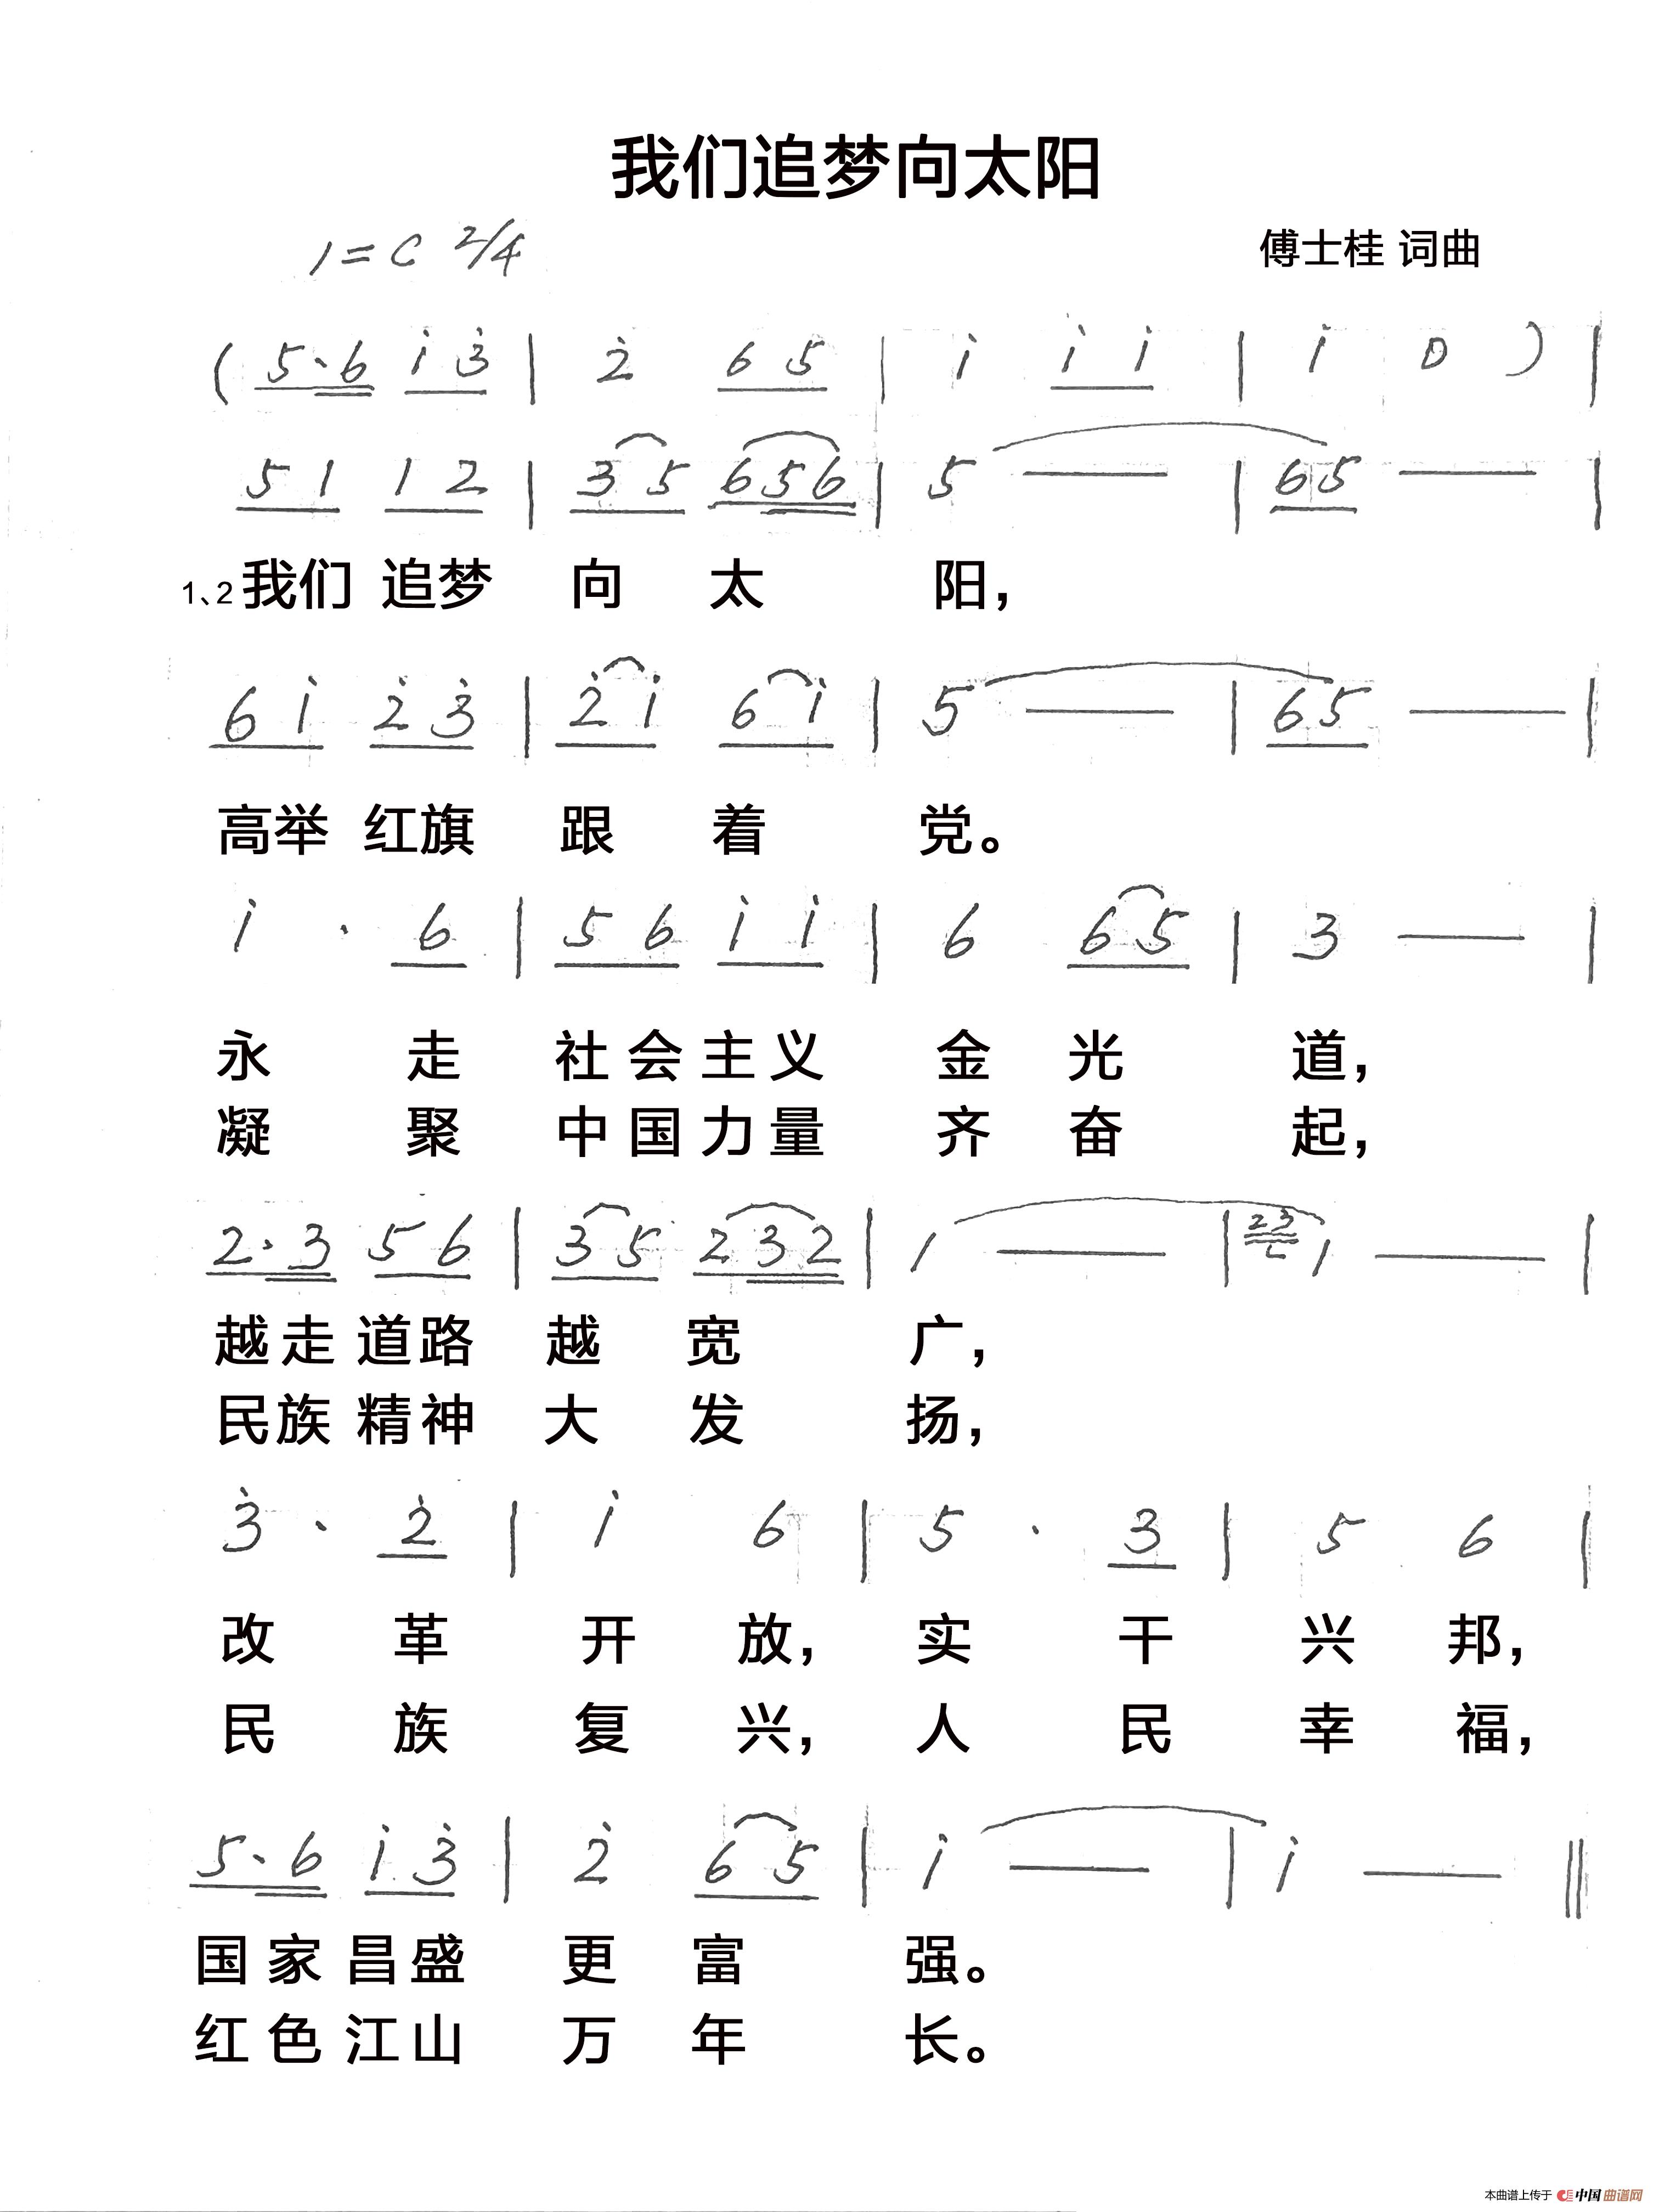 我们追梦向太阳
1=C 2/4
傅士桂 词曲
( 5·6 i 3̇ | 2̇ 6 5 | i i i | i 0 ) |
5 1 1 2 | 3 5 6 5 6 | 5 — | 6 5 — |
1、2我们 追梦 向 太 阳，
6 i 2̇ 3̇ | 2̇ i 6 i | 5 — | 6 5 — |
高举 红旗 跟 着 党。
i · 6 | 5 6 i i | 6 6 5 | 3 — |
永 走 社会主义 金 光 道，
凝 聚 中国力量 齐 奋 起，
2·3 5 6 | 3 5 2 3 2 | 1 — | 2 3 1 — |
越走道路 越 宽 广，
民族精神 大 发 扬，
3̇ · 2̇ | i 6 | 5 · 3 | 5 6 |
改 革 开 放， 实 干 兴 邦，
民 族 复 兴， 人 民 幸 福，
5·6 i 3̇ | 2̇ 6 5 | i — | i — ‖
国家昌盛 更 富 强。
红色江山 万 年 长。
本曲谱上传于 中国曲谱网